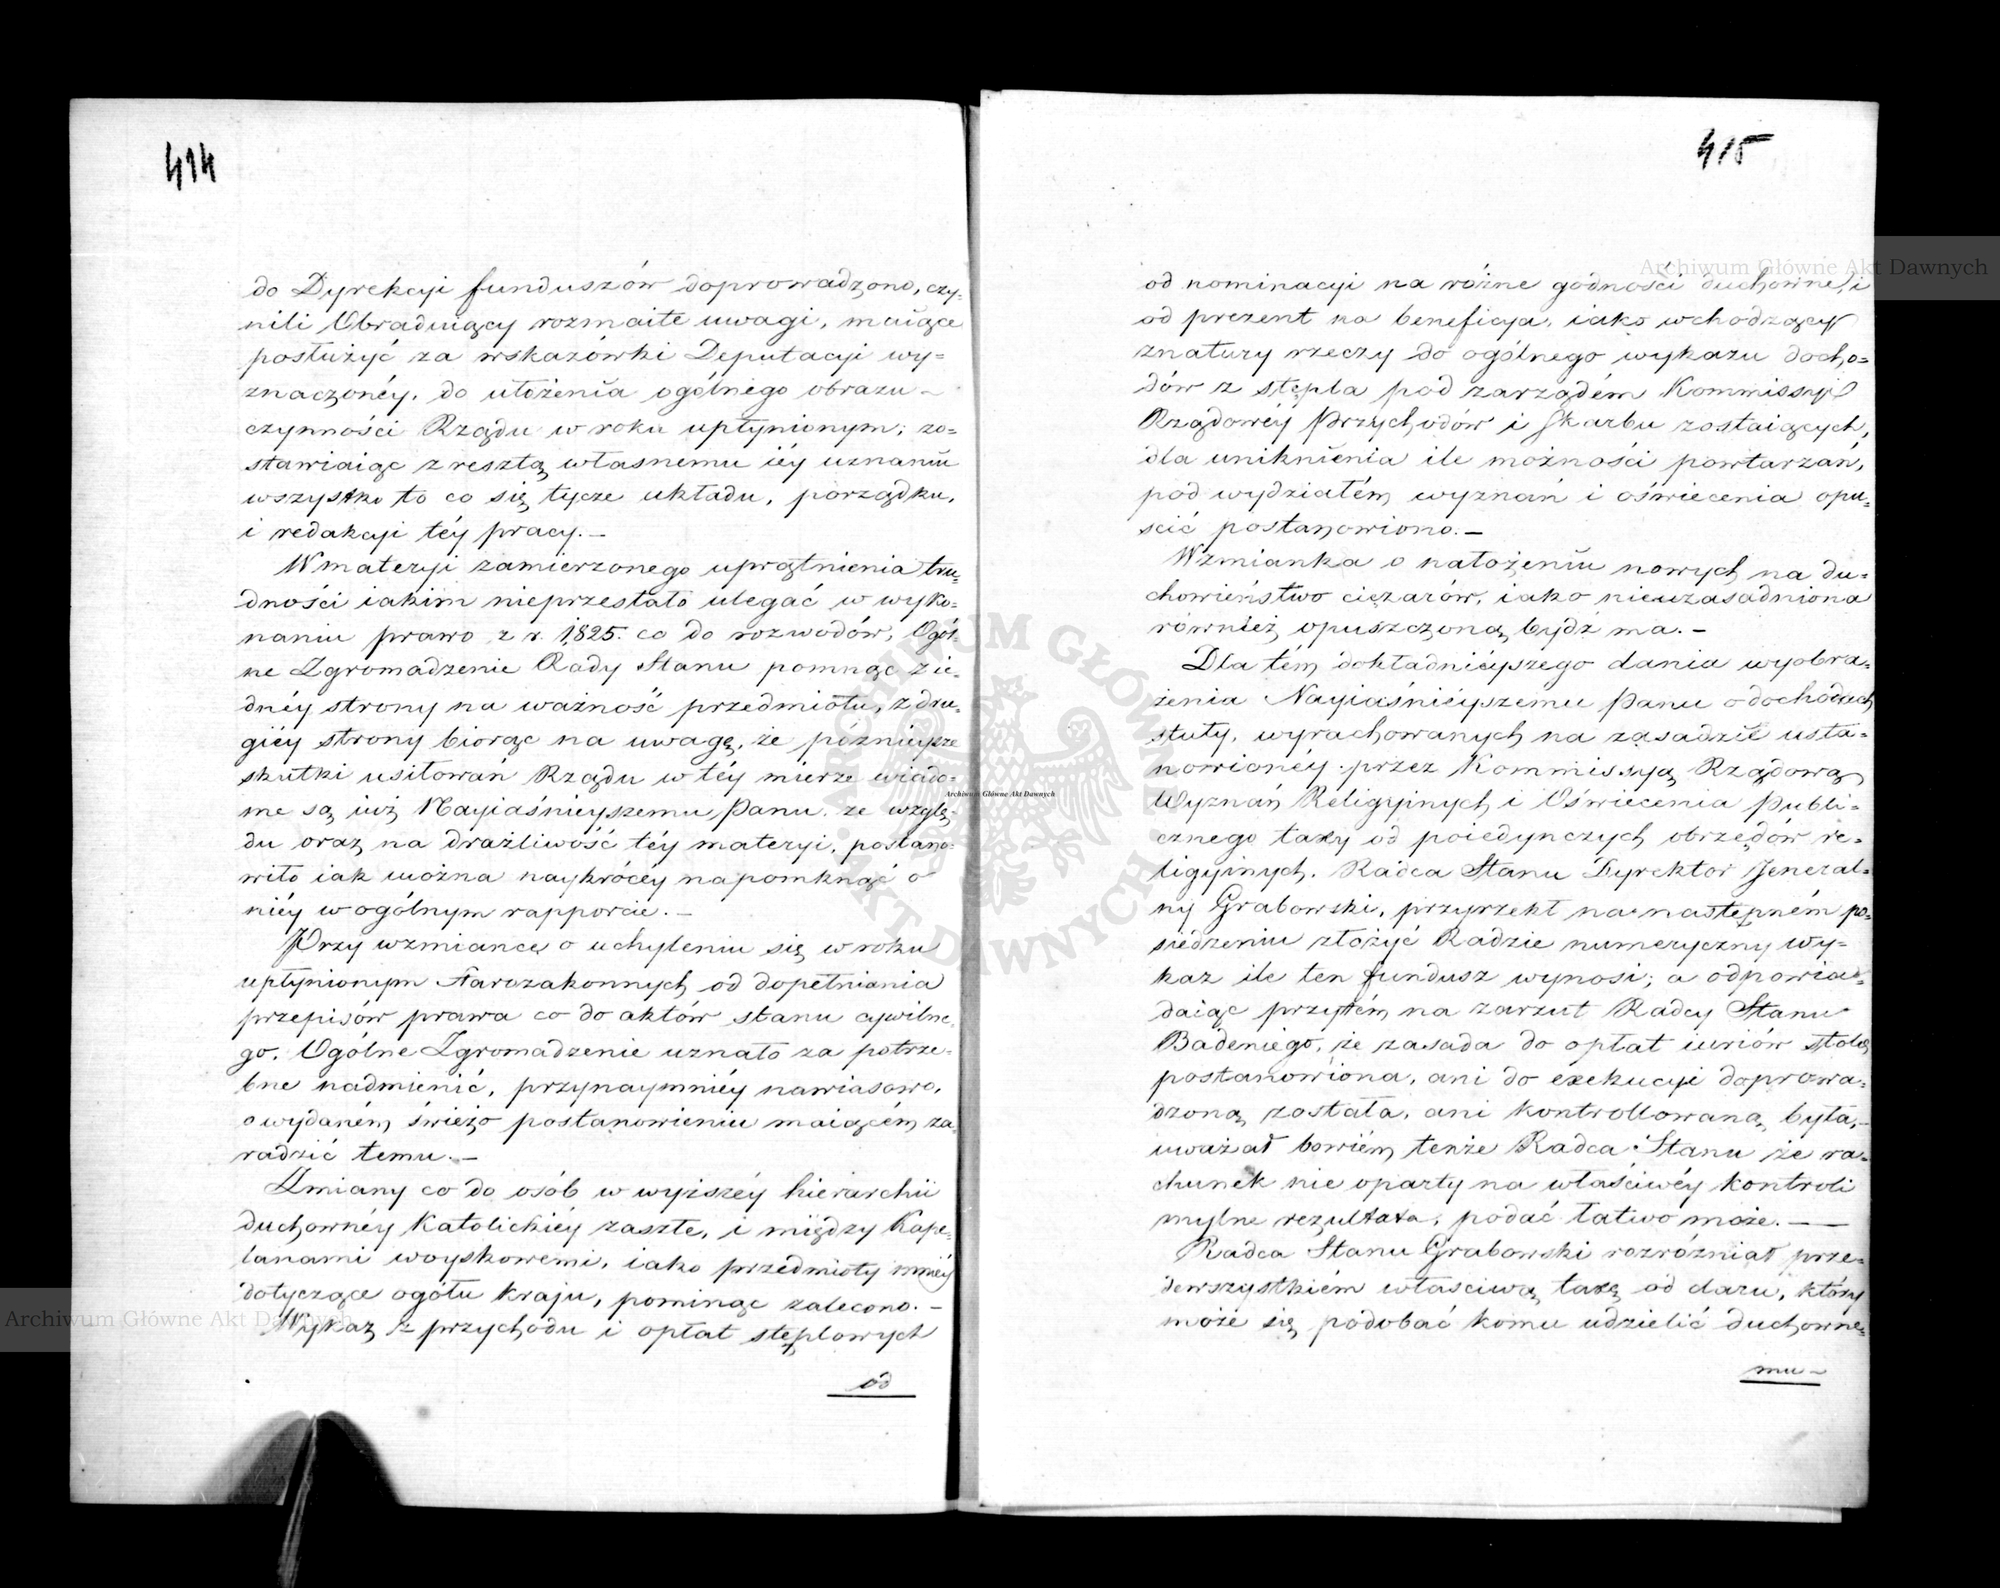 414
do Dyrekcyi funduszów doprowadzono, czy-
nili Obraduiący rozmaite uwagi, maiące
posłużyć za wskazówki Deputacyi wy-
znaczonéy, do ułożenia ogólnego obrazu
czynności Rządu w roku upłynionym; zo-
stawiaiąc zresztą własnemu iéy uznaniu
wszystko to co się tycze układu, porządku,
i redakcyi téy pracy.—
W materyi zamierzonego uprzątnienia tru-
dności iakim nieprzestało ulegać w wyko-
naniu prawo z r. 1825. co do rozwodów, Ogól-
ne Zgromadzenie Rady Stanu pomnąc z ie-
dnéy strony na ważność przedmiotu, z dru-
giéy strony biorąc na uwagę, że późnieysze
skutki usiłowań Rządu w téy mierze wiado-
me są iuż Nayiaśnieyszemu Panu, ze wzglę-
du oraz na drażliwość téy materyi, postano-
wiło iak można naykrócéy napomknąć o
niéy w ogólnym rapporcie.—
Przy wzmiance o uchyleniu się w roku
upłynionym Starozakonnych od dopełniania
przepisów prawa co do aktów stanu cywilne-
go, Ogólne Zgromadzenie uznało za potrze-
bne nadmienić, przynaymniéy nawiasowo,
o wydaném świeżo postanowieniu maiącém za-
radzić temu.—
Zmiany co do osób w wyższéy hierarchii
duchownéy Katolickiéy zaszłe, i między Kape-
lanami woyskowemi, iako przedmioty mniéy
dotyczące ogółu kraju, pominąć zalecono.—
Wykaz z przychodu i opłat stęplowych
od
415
od nominacyi na różne godności duchowne, i
od prezent na beneficya, iako wchodzący
z natury rzeczy do ogólnego wykazu docho-
dów z stępla pod zarządém Kommissyi
Rządowéy Przychodów i Skarbu zostaiących,
dla uniknienia ile możności powtarzań,
pod wydziałém wyznań i oświecenia opu-
ścić postanowiono.—
Wzmianka o nałożeniu nowych na du-
chowieństwo ciężarów, iako nieuzasadniona
również opuszczoną bydź ma.—
Dla tém dokładnieyszego dania wyobra-
żenia Nayiaśnieyszemu Panu o dochodach
stuły, wyrachowanych na zasadzie usta-
nowionéy przez Kommissyą Rządową
Wyznań Religiynych i Oświecenia Publi-
cznego taxy od poiedynczych obrzędów re-
ligiynych, Radca Stanu Dyrektor Jeneral-
ny Grabowski, przyrzekł na następném po-
siedzeniu złożyć Radzie numeryczny wy-
kaz ile ten fundusz wynosi; a odpowia-
daiąc przytém na zarzut Radcy Stanu
Badeniego, że zasada do opłat iuriów stolae
postanowiona, ani do exekucyi doprowa-
dzoną została, ani kontrollowaną była,—
uważał bowiém tenże Radca Stanu że ra-
chunek nie oparty na właściwéy kontroli
mylne rezultata, podać łatwo może.——
Radca Stanu Grabowski rozróżniał prze-
dewszystkiém właściwą taxę od daru, który
może się podobać komu udzielić duchowne-
mu
Archiwum Główne Akt Dawnych
Archiwum Główne Akt Dawnych
Archiwum Główne Akt Dawnych
ARCHIWUM GŁÓWNE AKT DAWNYCH